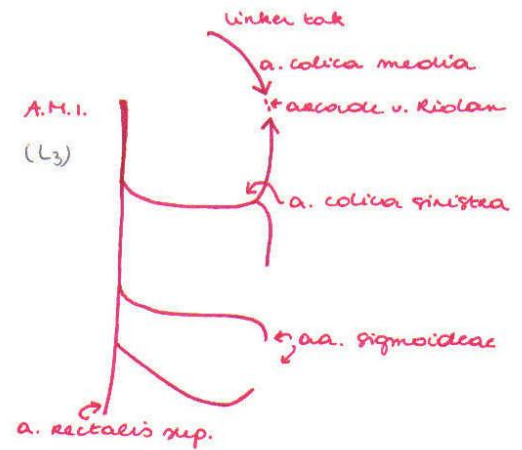 linker tak
a. colica media
A.M.I.
arcade v. Riolan
(L3)
a. colica sinistra
aa. sigmoideae
a. rectalis sup.